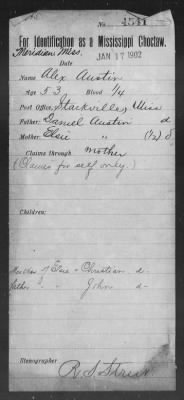 No. 4541
For Identification as a Mississippi Choctaw.
Meridian Miss. JAN 17 1902
Date
Name Alex Austin
Age 53 Blood 1/4
Post Office, Starkville, Miss
Father: Daniel Austin d
Mother: Elsie " (1/2) d
Claims through mother
(Claims for self only.)
Children:
Mother of Elsie - Christian d-
father " " John d-
Stenographer
R. S. Streit